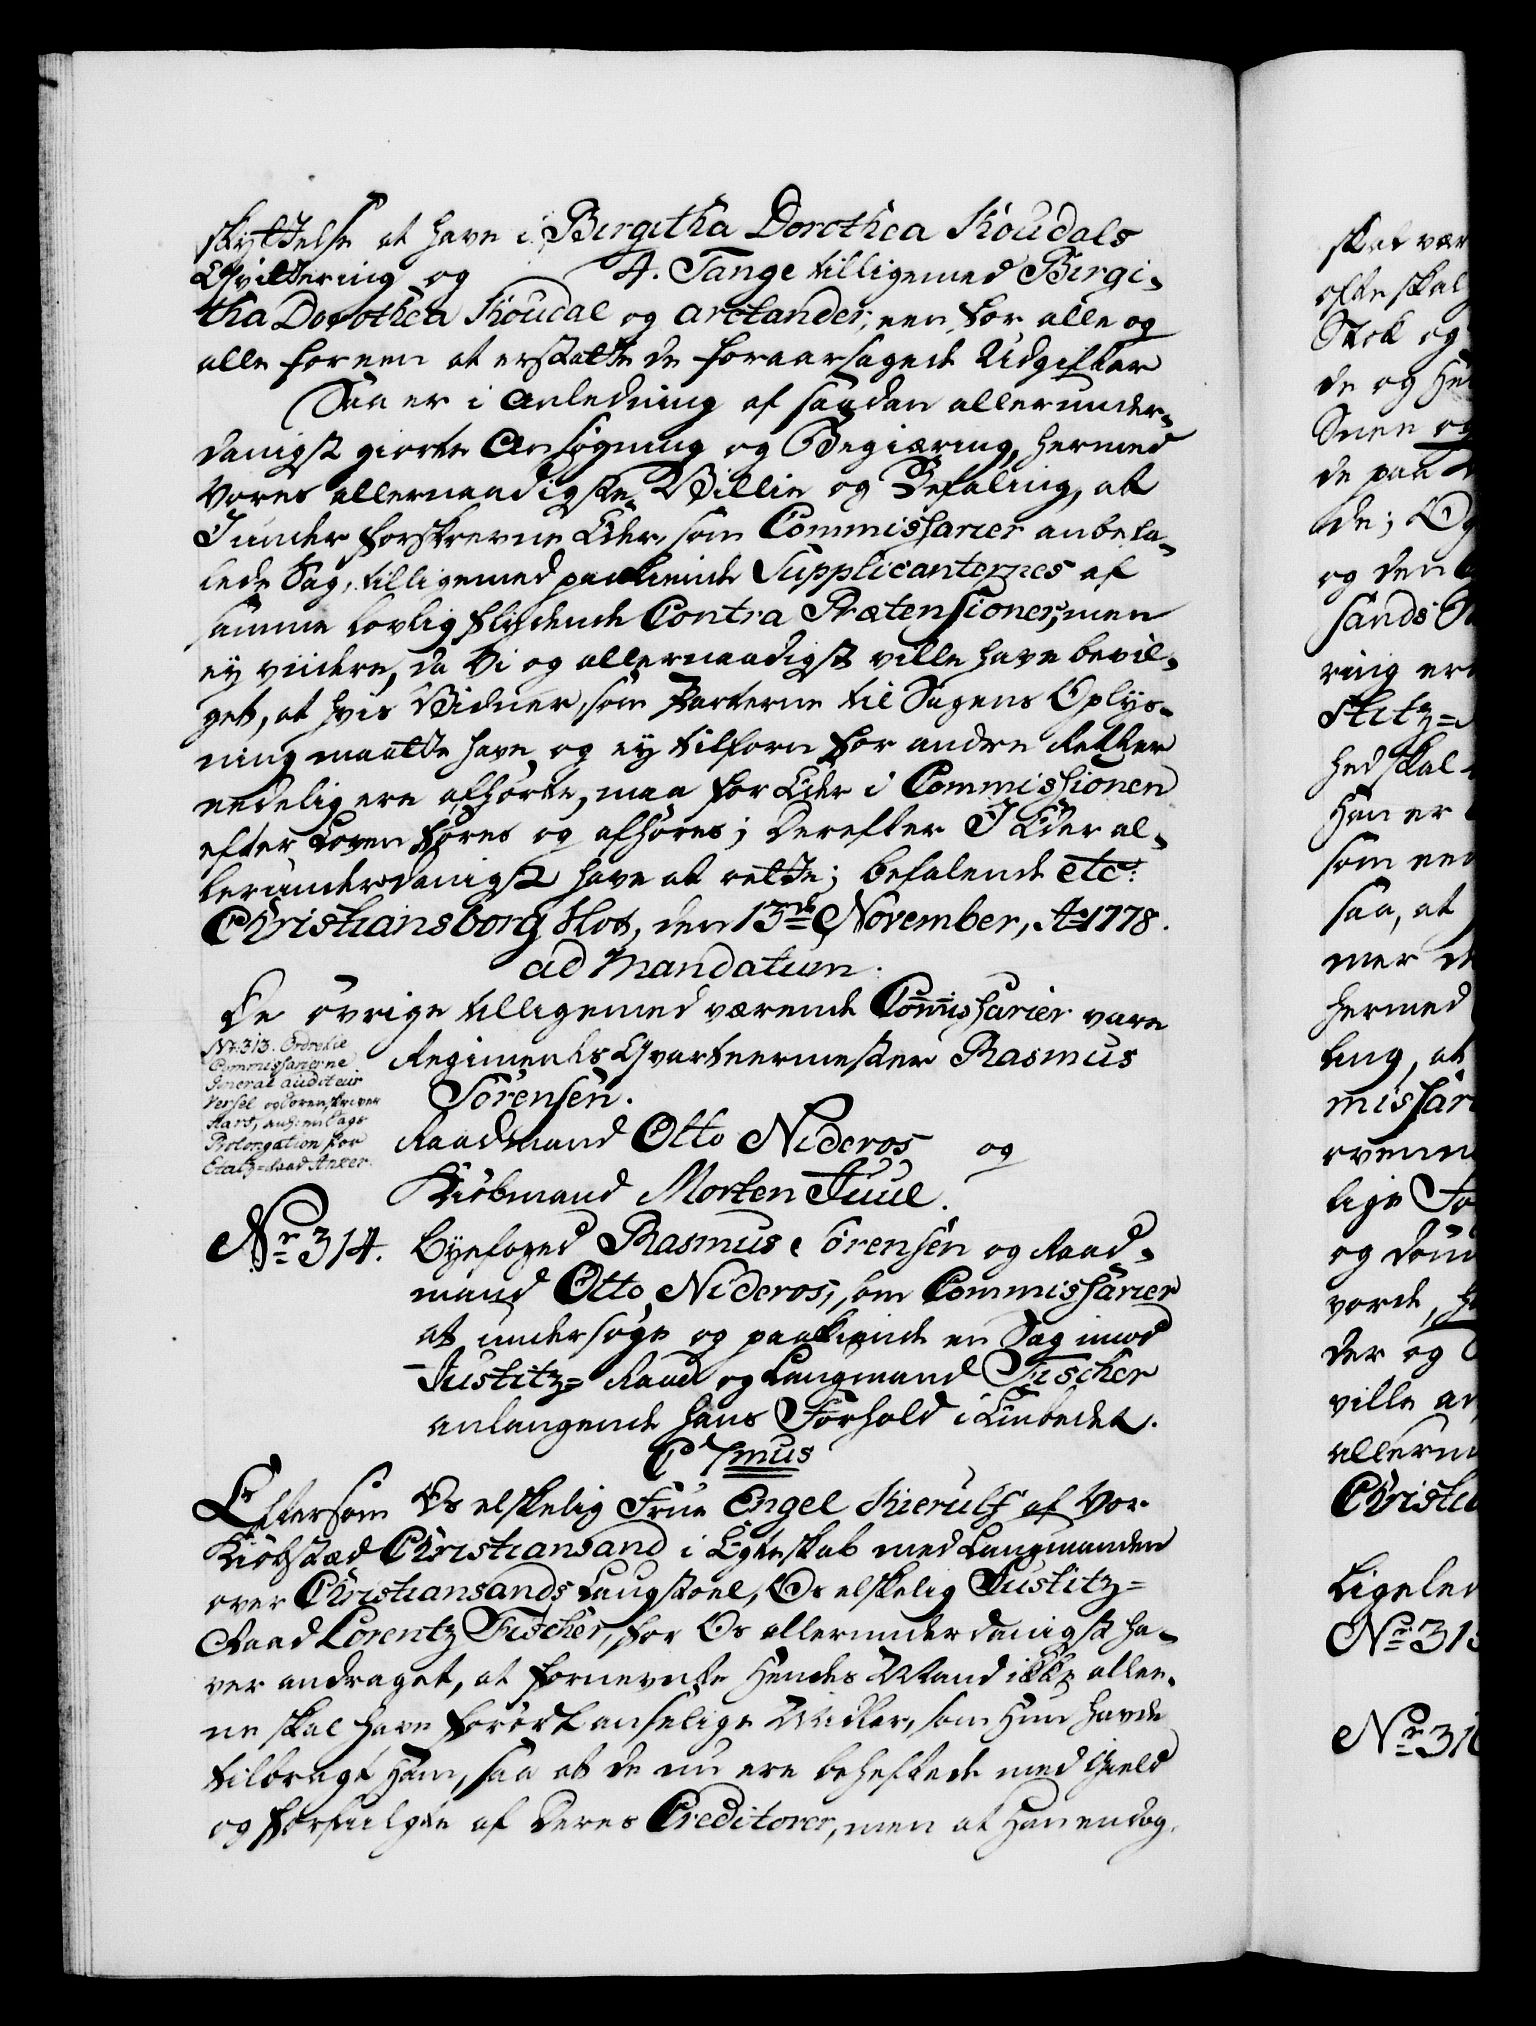 skyttelse at have i Birgitha Dorothea Koudals
Qvittering og A. Tange tilligemed Birgi-
tha Dorothea Koudal og Arctander, een for alle og
alle for een at erstatte de foraarsagede Udgifter
Saa er i Anledning af saadan allerunder-
danigst giorte Ansøgning og Begiæring, hermed
Vores allernaadigste Villie og Befaling, at
I under forskrevne Eder, som Commissarier anbefa-
lede Sag, tilligemed paakiende Supplicanternes af
samme lovlig flydende Contra Prætensioner, men
ey videre, da Vi og allernaadigst ville have bevil-
get, at hvis Vidner, som Parterne til Sagens Oplys-
ning maatte have, og ey tilforn for andre Retter
eedelig ere afhørte, maa for Eder i Commissionen
efter Loven føres og afhøres; Derefter I Eder al-
lerunderdanigst have at rette; befalende etc:
Christiansborg Slot, den 13de November, Ao 1778.
ad Mandatum.
De øvrige tilligemed værende Commissarier vare
Regiments Qvarteermester Rasmus
Sörensen.
Raadmand Otto Nideros og
Kiöbmand Morten Juul.
No. 313. Ordre til
Commissarierne
General Auditeur
Wessel og Sorenskriver
Aars, anh: en Sags
Prolongation for
Etatz-Raad Anker.
Nr. 314. Byefoged Rasmus Sörensen og Raad-
mand Otto Nideros, som Commissarier
at undersøge og paakiende en Sag imod
Justitz-Raad og Laugmand Fischer
anlangende hans Forhold i Embedet.
C 7mus
Eftersom Os elskelig Frue Engel Kierulf af Vor
Kiöbstæd Christiansand i Egteskab med Laugmanden
over Christiansands Laugstoel, Os elskelig Justitz-
Raad Lorentz Fischer, for Os allerunderdanigst ha-
ver andraget, at fornevnte Hendes Mand ikke allee-
ne skal have forødt anselige Midler, som Hun havde
tilbragt Ham, saa at de nu ere beheftede med Gield
og forfulgte af deres Creditorer, men at Han endog
skal vær
ofte skal
Stok og
de og He
Sneen og
de paa
de; Og
og den
sands
ring er
stitz=
hed skal
Han er
som en
saa, at
mer de
hermed
ling, at
missari
ovenn
lige
og dom
vorde,
der og
ville an
allern
Christia
Ligeled
Nr. 315
Nr. 316